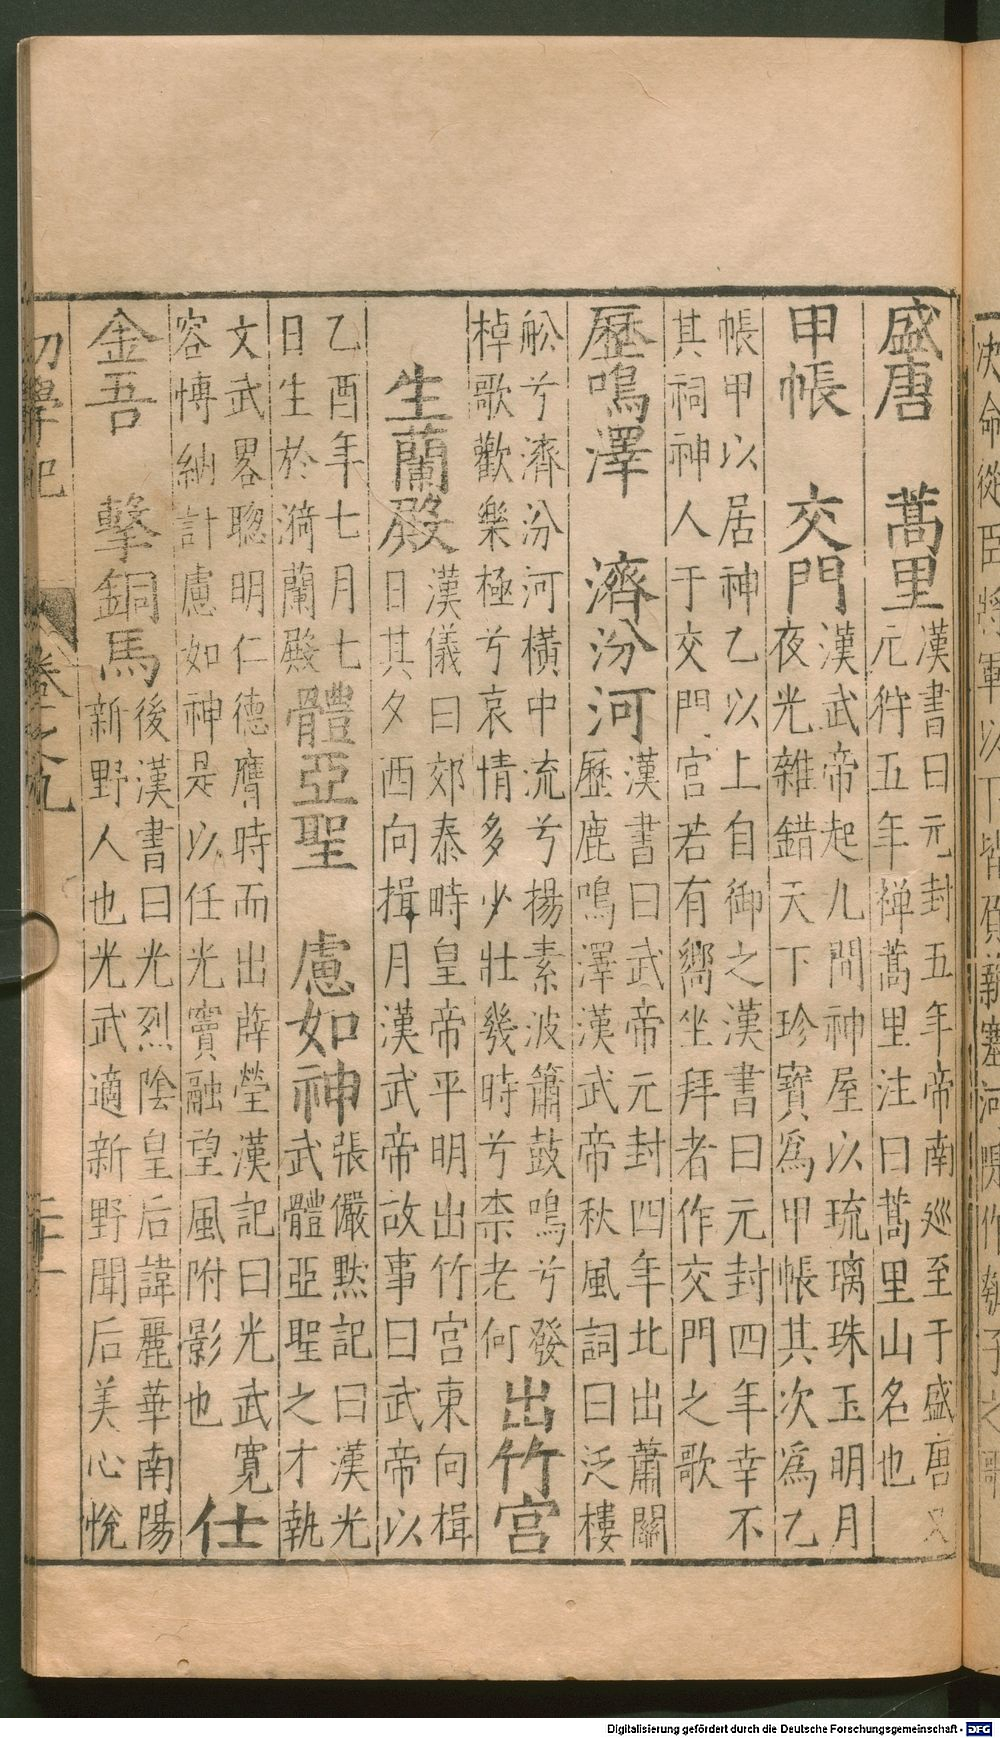 決命從臣將軍以下皆負薪塞河隄作瓠子之歌
盛唐　蒿里
漢書曰元封五年帝南巡至于盛唐又
元狩五年禅蒿里注曰蒿里山名也
甲帳　交門
漢武帝起九間神屋以琉璃珠玉明月
夜光雜錯天下珍寶爲甲帳其次爲乙
帳甲以居神乙以上自御之漢書曰元封四年幸不
其祠神人于交門宮若有嚮坐拜者作交門之歌
歷鳴澤　濟汾河
漢書曰武帝元封四年北出蕭關
歷鹿鳴澤漢武帝秋風詞曰泛樓
舩兮濟汾河橫中流兮揚素波簫鼓鳴兮發
棹歌歡樂極兮哀情多少壯幾時兮柰老何
出竹宮
生蘭殿
漢儀曰郊泰畤皇帝平明出竹宮東向揖
日其夕西向揖月漢武帝故事曰武帝以
乙酉年七月七
日生於漪蘭殿
體亞聖　慮如神
張儼默記曰漢光
武體亞聖之才執
文武畧聦明仁德膺時而出薛瑩漢記曰光武寛
容博納計慮如神是以任光竇融望風附影也
仕
金吾　擊銅馬
後漢書曰光烈陰皇后諱麗華南陽
新野人也光武適新野聞后美心悅
初學記　卷之九　二十一
Digitalisierung gefördert durch die Deutsche Forschungsgemeinschaft - DFG